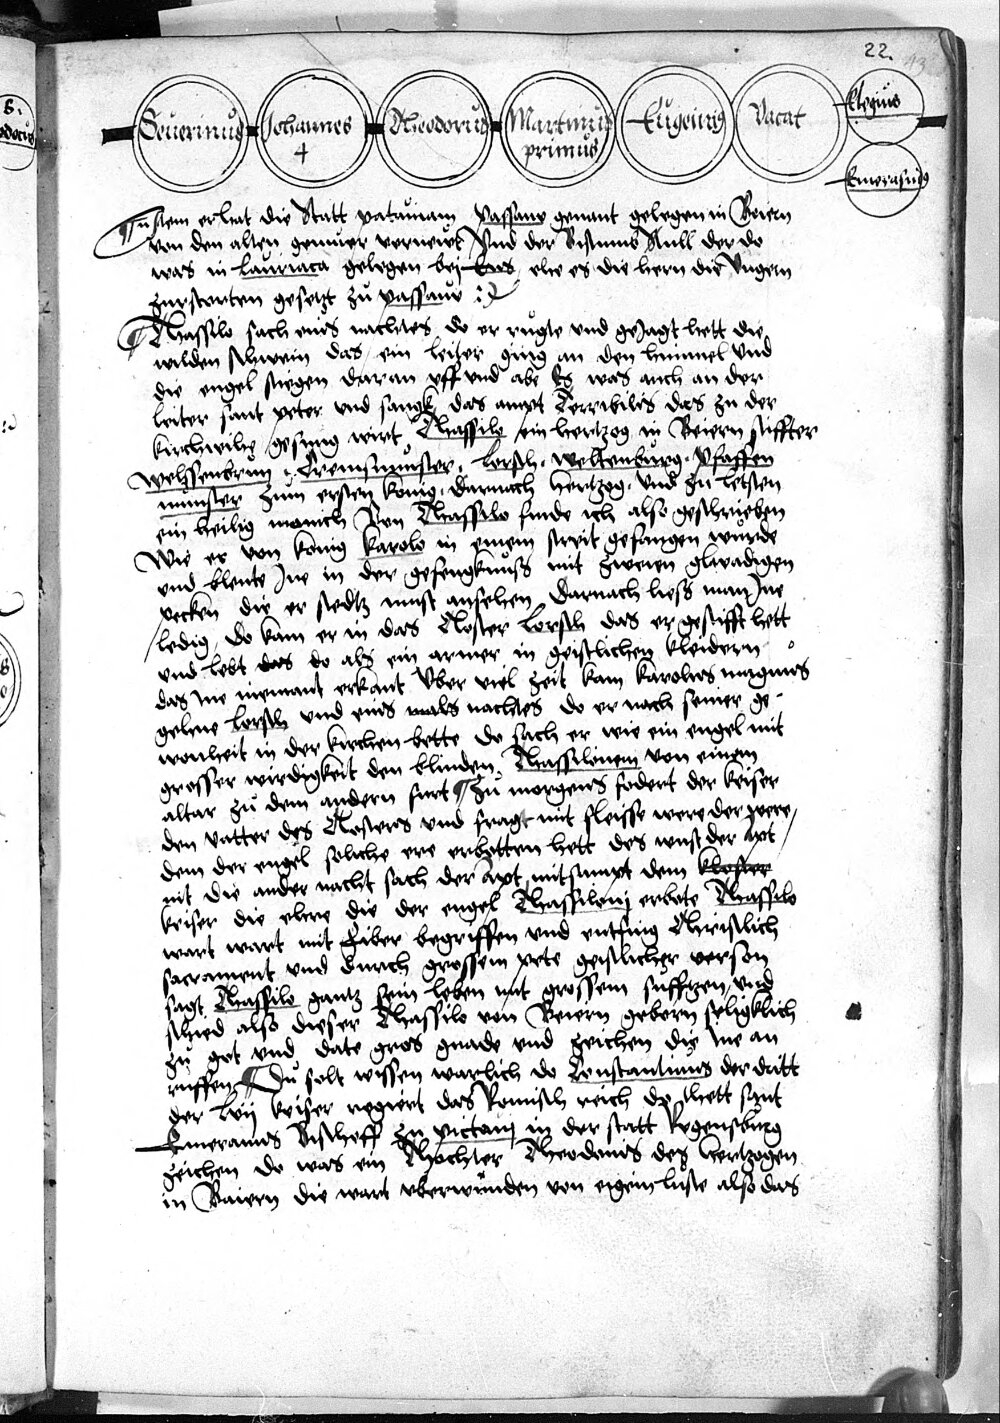 22.
43
Seuerinus
Johannes
4
Theodorus
Martinus
primus
Eugenius
Vacat
Elegius
Emeramus
¶ Item er hat die Statt patauiam Passaw genant gelegen in Beiern
von den alten gemuer vernewt Vnd der Bistums Stull der do
was in Lauriaca gelegen bej Ens ehe es die hern die Vngern
zurstorten gesetzt zu passaw
¶ Thassilo sach eins nachtes do er rugte vnd gejagt hett die
wilden schwein das ein leiter ging an den himmel vnd
die engel stiegen daran vff vnd abe Es was auch an der
leiter sant peter vnd sangk das ampt Terribilis das zu der
kirchwihe gesung wirt Thassilo ein hertzog in Beiern stiffter
Wessenbrun Cremsmunster Lorsch Weltenburg Pfaffen
munster zum ersten konig darnach hertzog vnd zu letsten
ein heilig monich Von Thassilo finde ich also geschrieben
Wie er von konig Karolo in einem streit gefangen wurde
vnd blente Jne in der gefengknuss mit zweien gluadigen
pecken die er stedtz must ansehen Darnach liess man Jne
ledig do kam er in das Closter Lorsch das er gestifft hett
vnd lebt das do als ein armer in geistlichen kleidern
das Jne niemant erkant Vber viel zeit kam Karolus magnus
gelene Lorsch vnd eins mals nachtes do er nach seiner ge
wonheit in der kirchen bette do sach er wie ein engel mit
grosser wirdigkeit den blinden Thassilonem von einem
altar zu dem andern furt ¶ Zu morgens fodert der keiser
den vatter des Closters vnd fragt mit fleisse were der were
dem der engel soliche ere erbotten hett des wust der apt
nit die ander nacht sach der Apt mitsampt dem kloster
keiser die ehere die der engel Thassilonj erbote Thassilo
wart wart mit fiber begriffen vnd entfing Christlich
sacrament vnd durch grossem pete geistlicher person
sagt Thassilo gantz sein leben mit grossem sufftzen vnd
schied also dieser Thassilo von Beiern gebern seligklich
zu got vnd date gros gnade vnd zeichen die Jne an
ruffen ¶ Du solt wissen warlich do Constantinus der dritt
der Lvij keiser regiert das Romisch reich do thett sant
Emeramus Bischoff zu pictaui in der statt Regensburg
zeichen do was ein thochter Theodonis des hertzogen
in Baiern die wart vberwunden von eigem luste also das